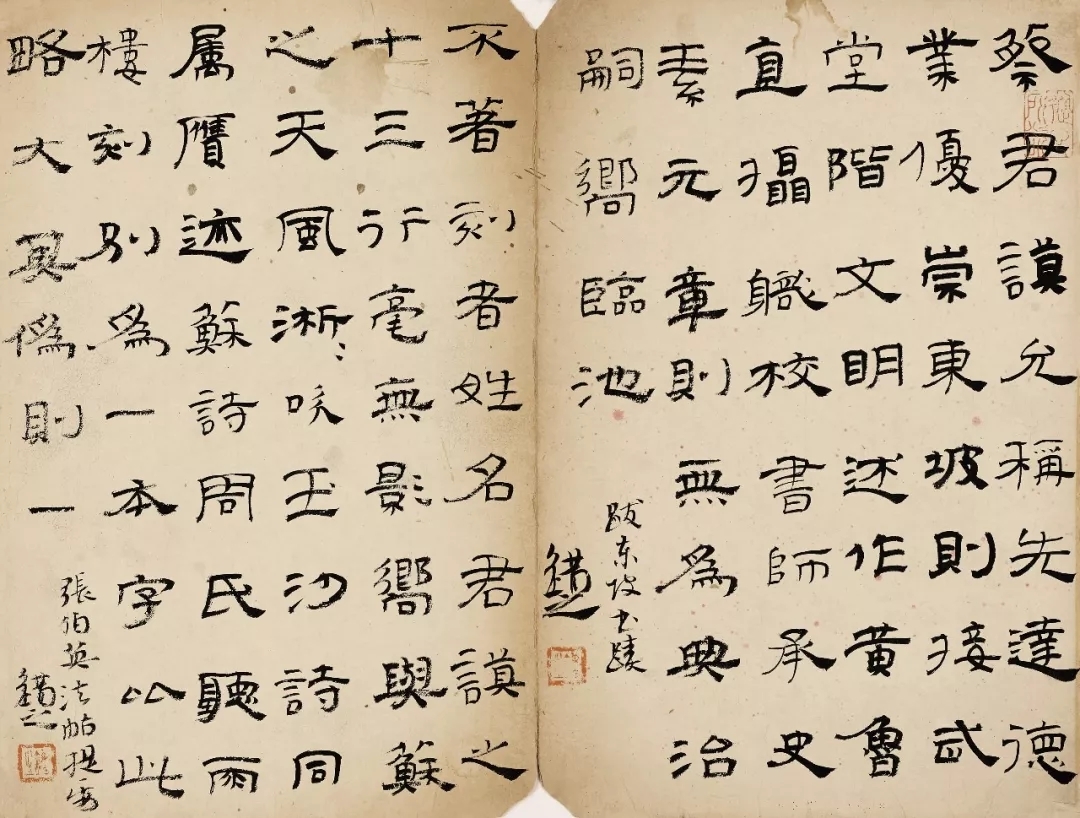 祭君謨允稱先達德
業優崇東坡則接武
堂階文明述作黃魯
直攝職校書師承史
素元章則無為典治
嗣嚮臨池
跋東坡書蹟
不著刻者姓名君謨之
十三行毫無影嚮與蘇
之天風淅〻吹玉沙詩同
属贋迹蘇詩周氏聽雨
樓刻別為一本字以此
略大真偽則一
張伯英法帖提要